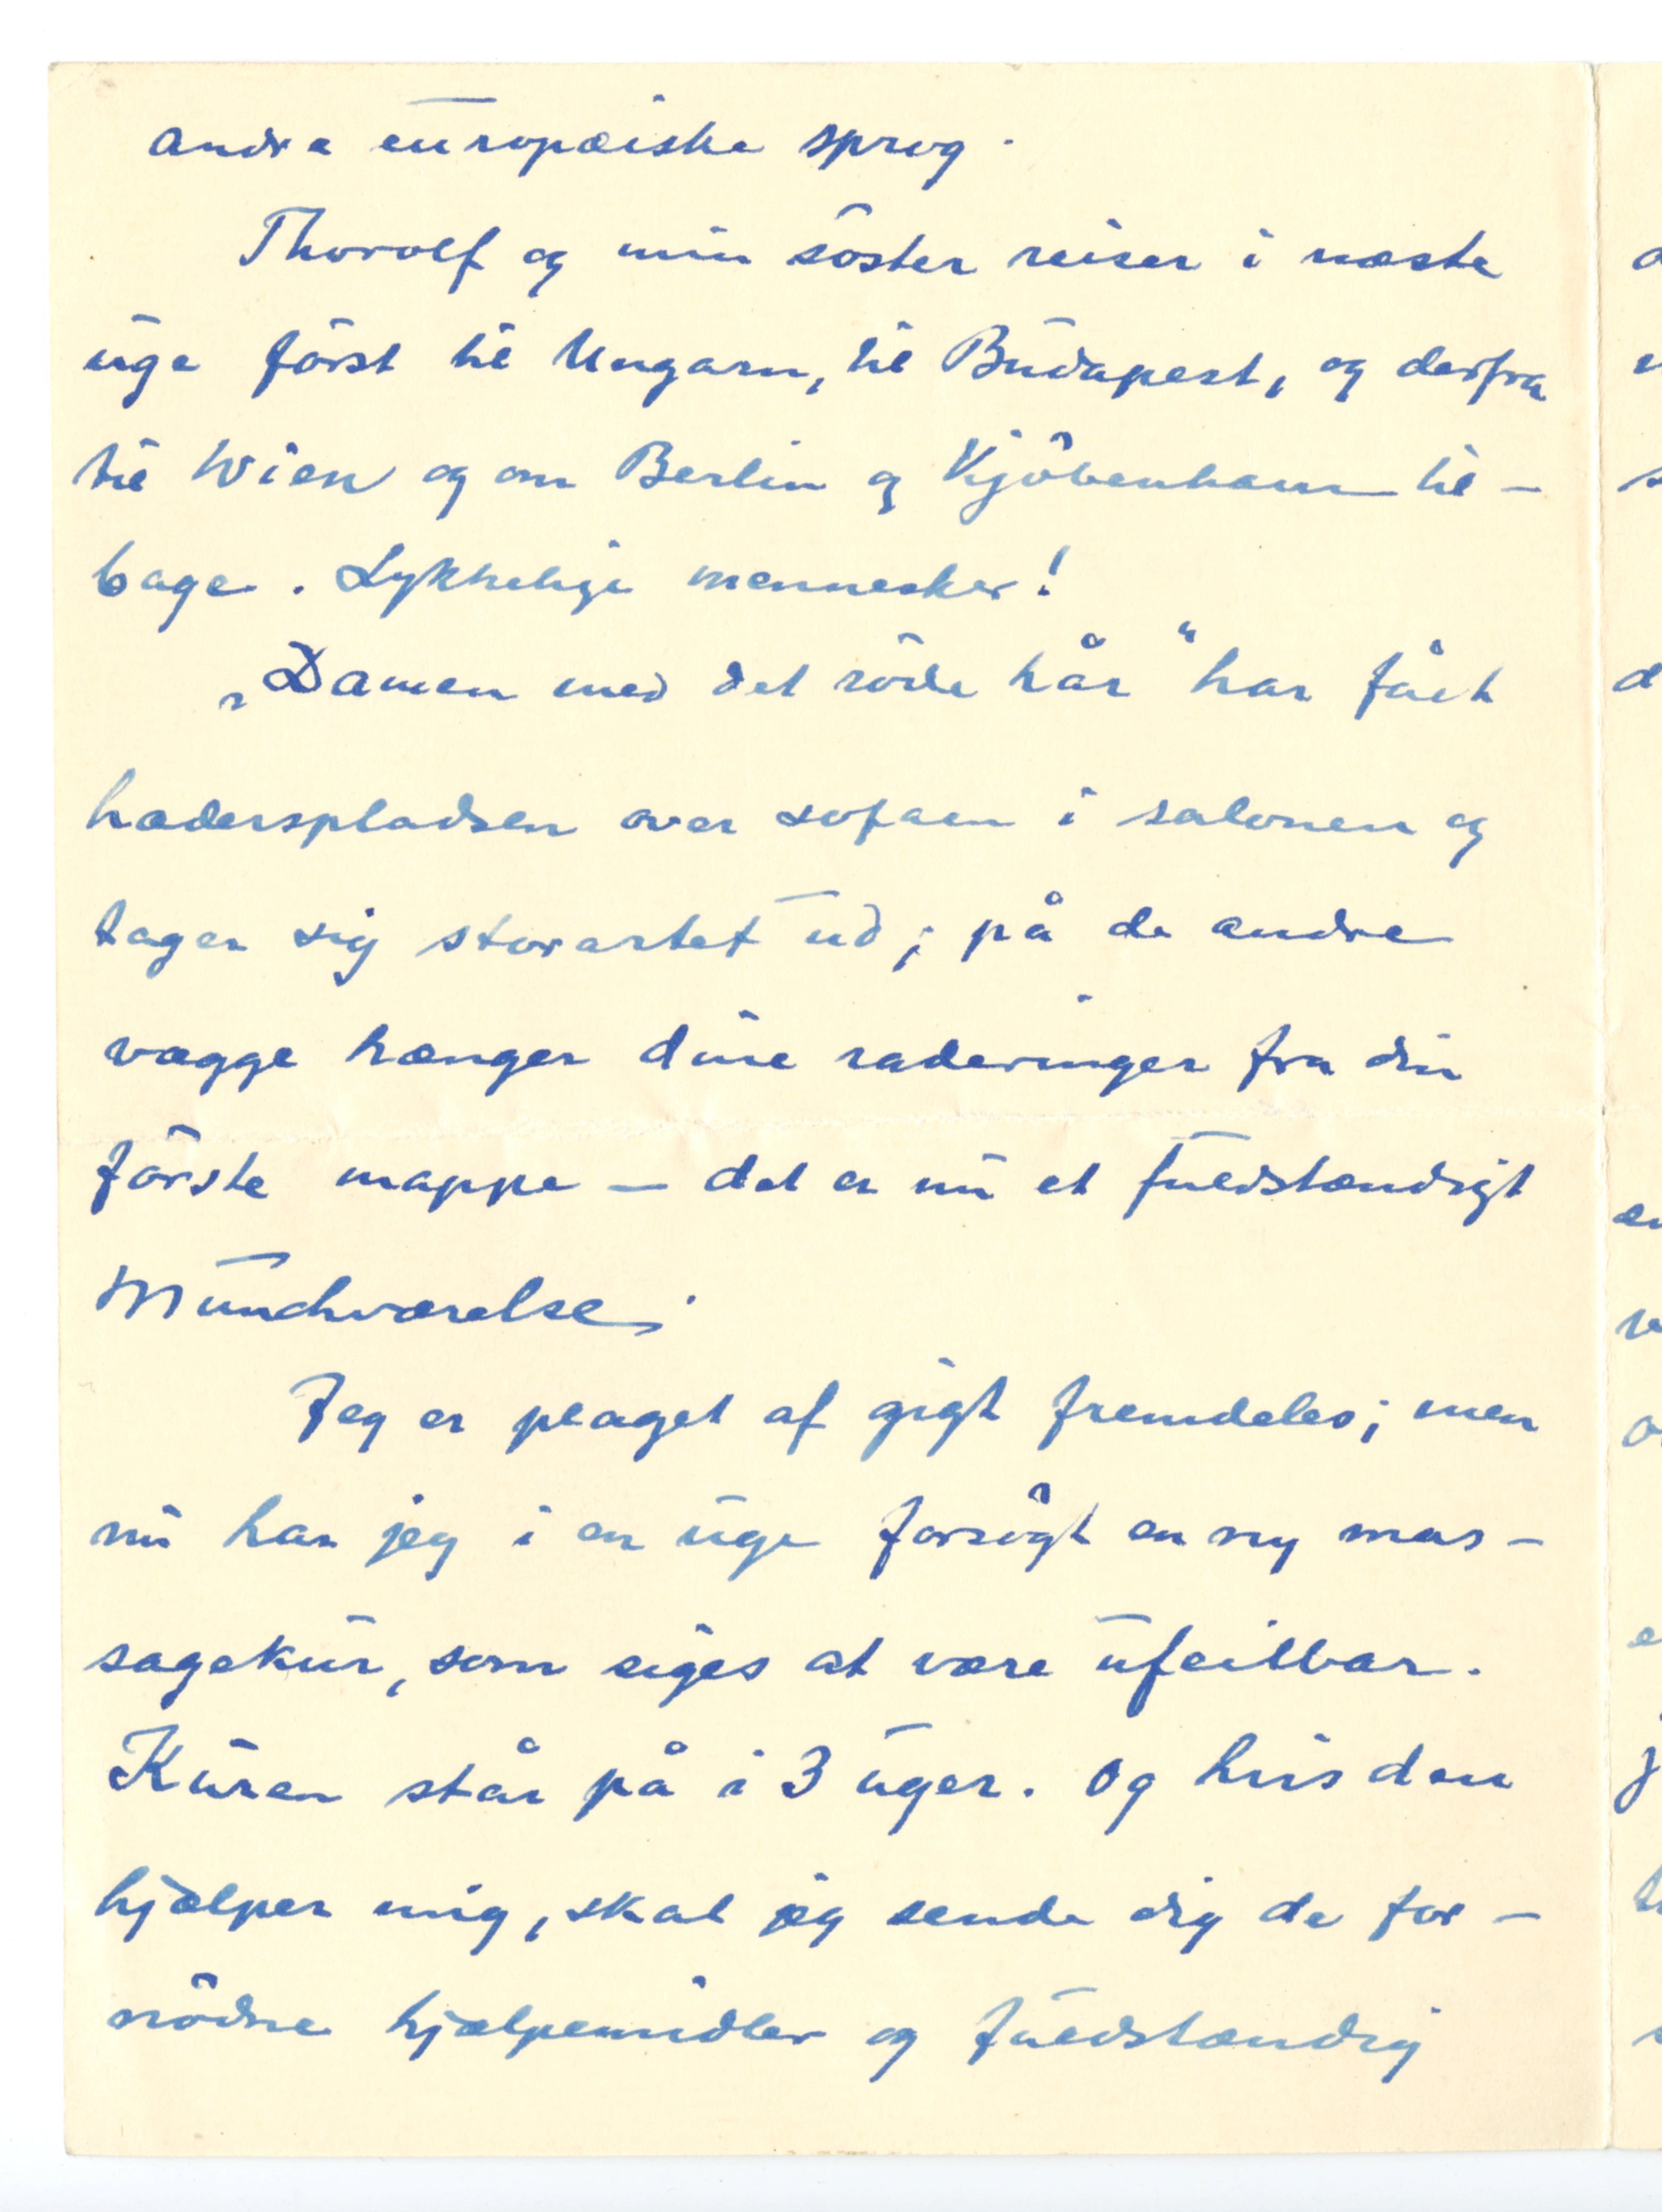 andre europæiske sprog.
Thorolf og min söster reiser i næste
uge först til Ungarn, til Budapest, og derfra
til Wien og om Berlin og Kjöbenhavn til-
bage. Lykkelige mennesker!
„Damen med det röde hår“ har fået
hæderspladsen over sofaen i salonen og
tager sig storartet ud; på de andre
vægge hænger dine raderinger fra din
förste mappe – det er nu et fuldstændigt
Munchværelse.
Jeg er plaget af gigt fremdeles; men
nu har jeg i en uge forsögt en ny mas-
sagekur, som siges at være ufeilbar.
Kuren står på i 3 uger. Og hvis den
hjælper mig, skal jeg sende dig de for-
nödne hjælpemidler og fuldstændig